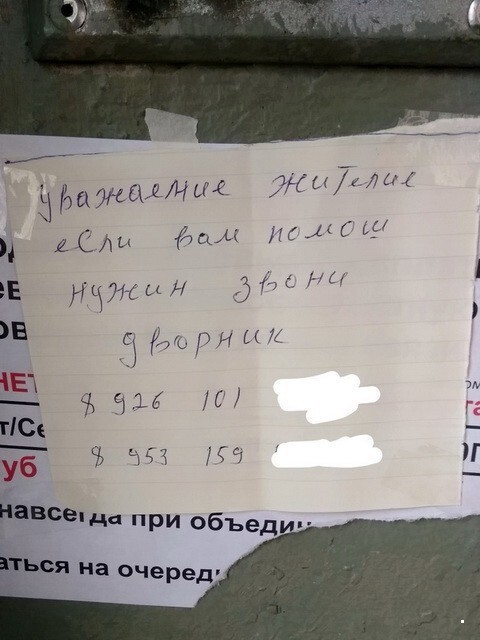 уважаемие жителие
если вам помощ
нужин звони
дворник
8 926 101
8 953 159
НЕТ
т/Се
уб
навсегда при объедин
аться на очеред